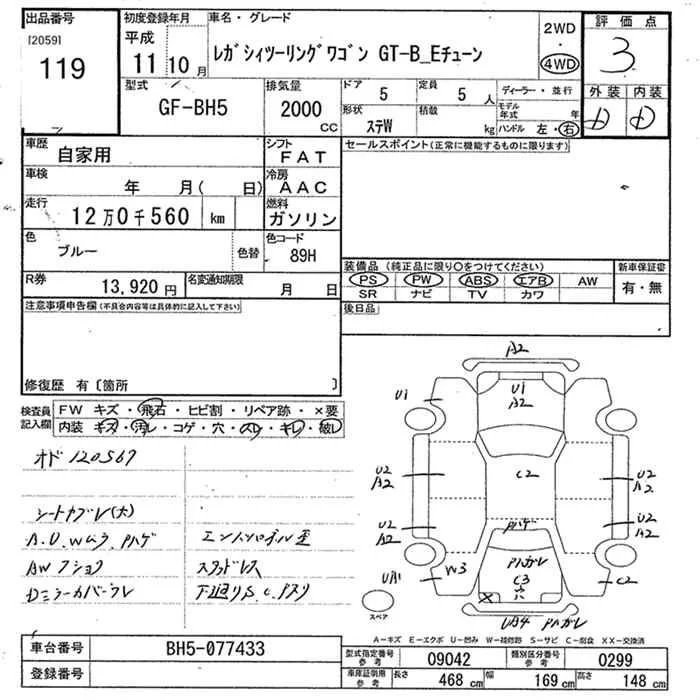 出品番号
[2059]
119
初度登録年月
平成
11 10月
車名・グレード
レガシィツーリングワゴン GT-B_Eチューン
2WD
・
4WD
評価点
3
外装 内装
D D
型式
GF-BH5
排気量
2000
cc
ドア 5
定員 5 人
形状 ステW
積載 kg
ディーラー・並行
モデル年式 年
ハンドル 左・右
車歴
自家用
シフト
FAT
車検
年 月( 日)
冷房
AAC
走行
12万0千560 km
燃料
ガソリン
色
ブルー
色替
色コード
89H
R券
13,920円
名変通知期限
月 日
セールスポイント(正常に機能するものに限ります)
装備品(純正品に限り○をつけてください)
PS PW ABS エアB AW
SR ナビ TV カワ
新車保証書
有・無
後日品
注意事項申告欄(不具合内容等は具体的に記入して下さい)
修復歴 有〔箇所 〕
検査員
記入欄
FW キズ・飛石・ヒビ割・リペア跡・×要
内装 キズ・汚レ・コゲ・穴・スレ・キレ・破レ
オド 120567
シートカブレ(大)
A.U.Wムラ ハゲ
スタッドレス
A2
U1
U1
A2
C2
U2
A2
U2
A2
U2
A2
U2
A2
ハゲ
ハガレ
C3
穴
W3
C2
UA1
UB4 ハガレ
スペア
A-キズ E-エクボ U-凹み W-補修跡 S-サビ C-腐食 XX-交換済
車台番号
BH5-077433
登録番号
型式指定番号
参考
09042
類別区分番号
参考
0299
車庫証明用
参考
長さ 468 cm
幅 169 cm
高さ 148 cm